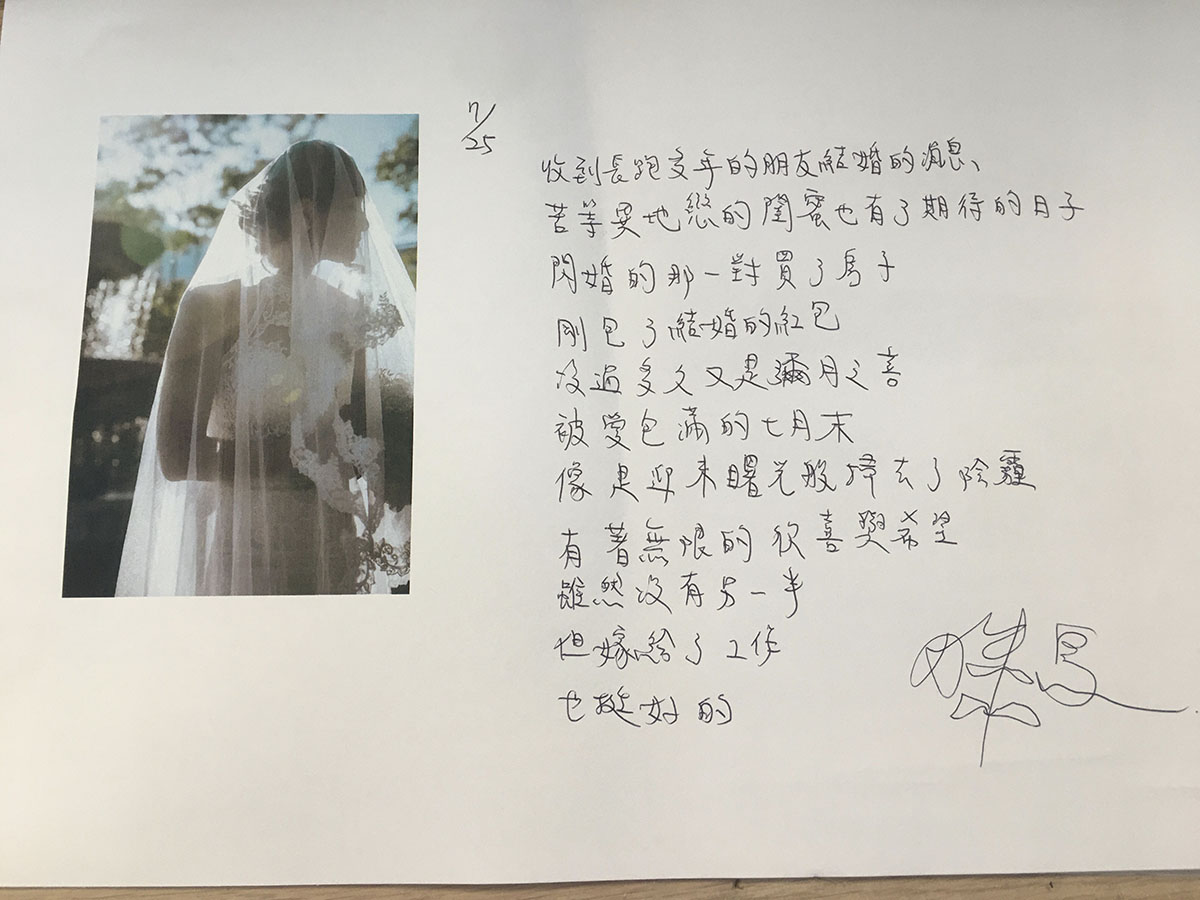 7/25
收到長跑多年的朋友結婚的消息、
苦等異地戀的閨蜜也有了期待的日子
閃婚的那一對買了房子
剛包了結婚的紅包
沒過多久又是彌月之喜
被愛包滿的七月末
像是迎來曙光般掃去了陰霾
有著無限的欣喜與希望
雖然沒有另一半
但嫁給了工作
也挺好的